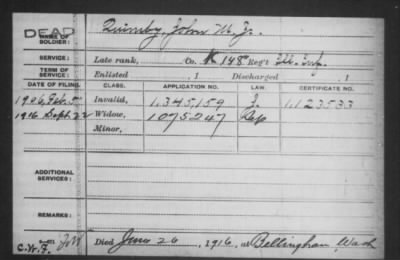 DEAD
NAME OF SOLDIER: Quimby, John M. Z.
SERVICE: Late rank, Co. K 148 Reg't Ill. Inf.
TERM OF SERVICE: Enlisted , 1 Discharged , 1
DATE OF FILING. CLASS. APPLICATION NO. LAW. CERTIFICATE NO.
1906, Feb. 5 Invalid, 1,345,159 1,123533
1916 Sept. 22 Widow, 1075247
Minor,
ADDITIONAL SERVICES:
REMARKS:
Died June 26, 1916, at Bellingham, Wash